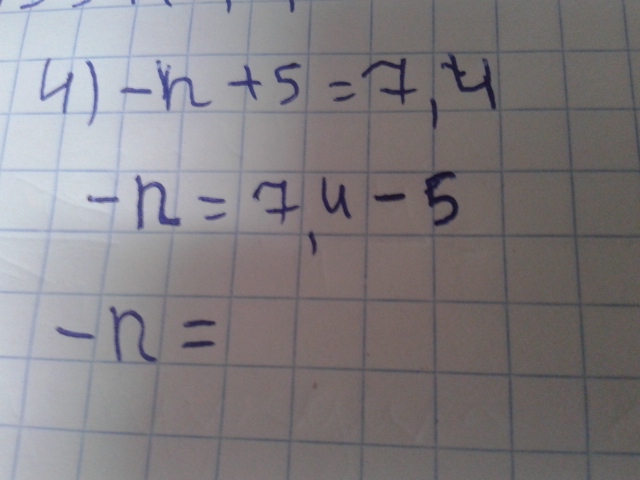 4) -n + 5 = 7,4
-n = 7,4 - 5
-n =